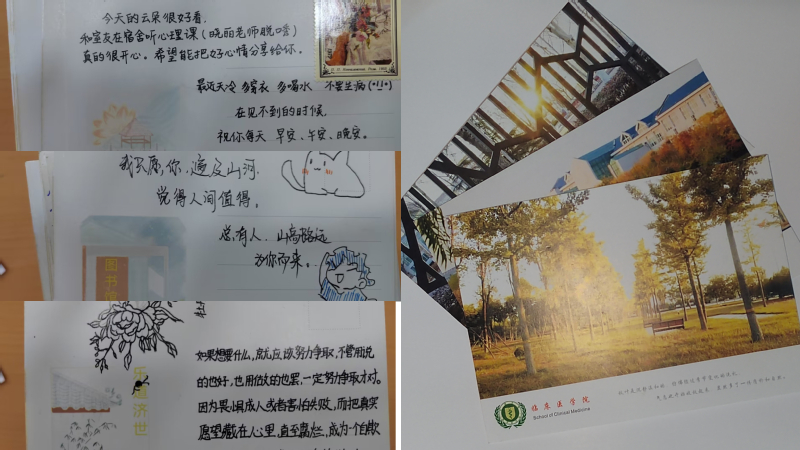 今天的云朵很好看.
和室友在宿舍听心理课(晓丽老师脱口秀)
真的很开心。希望能把好心情分享给你.
最近天冷 多穿衣 多喝水 不要生病(•!!•)
在见不到的时候.
祝你每天 早安、午安、晚安。
我只愿,你,遍及山河
觉得人间值得.
总有人.山高路远
为你而来。
图书
乐道济世
如果想要什么,就应该努力争取,不管用说
的也好,也用做的也罢,一定努力争取才对.
因为畏惧成人或者害怕失败,而把真实
愿望藏在心里,直至腐烂,成为一个自欺
临床医学院
School of Clinical Medicine